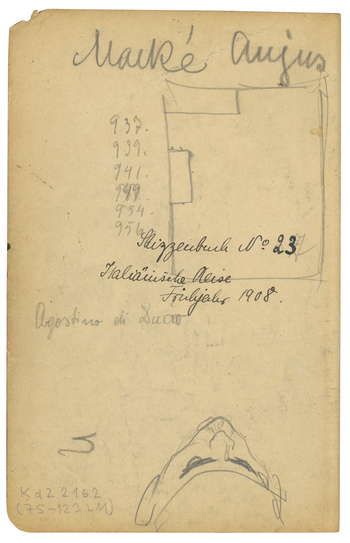 Macké August
937.
939.
941.
949.
954.
956.
Skizzenbuch No 23
Italiänische Reise
Frühjahr 1908.
Agostino di Duccio
KdZ 2162
(75-1232M)